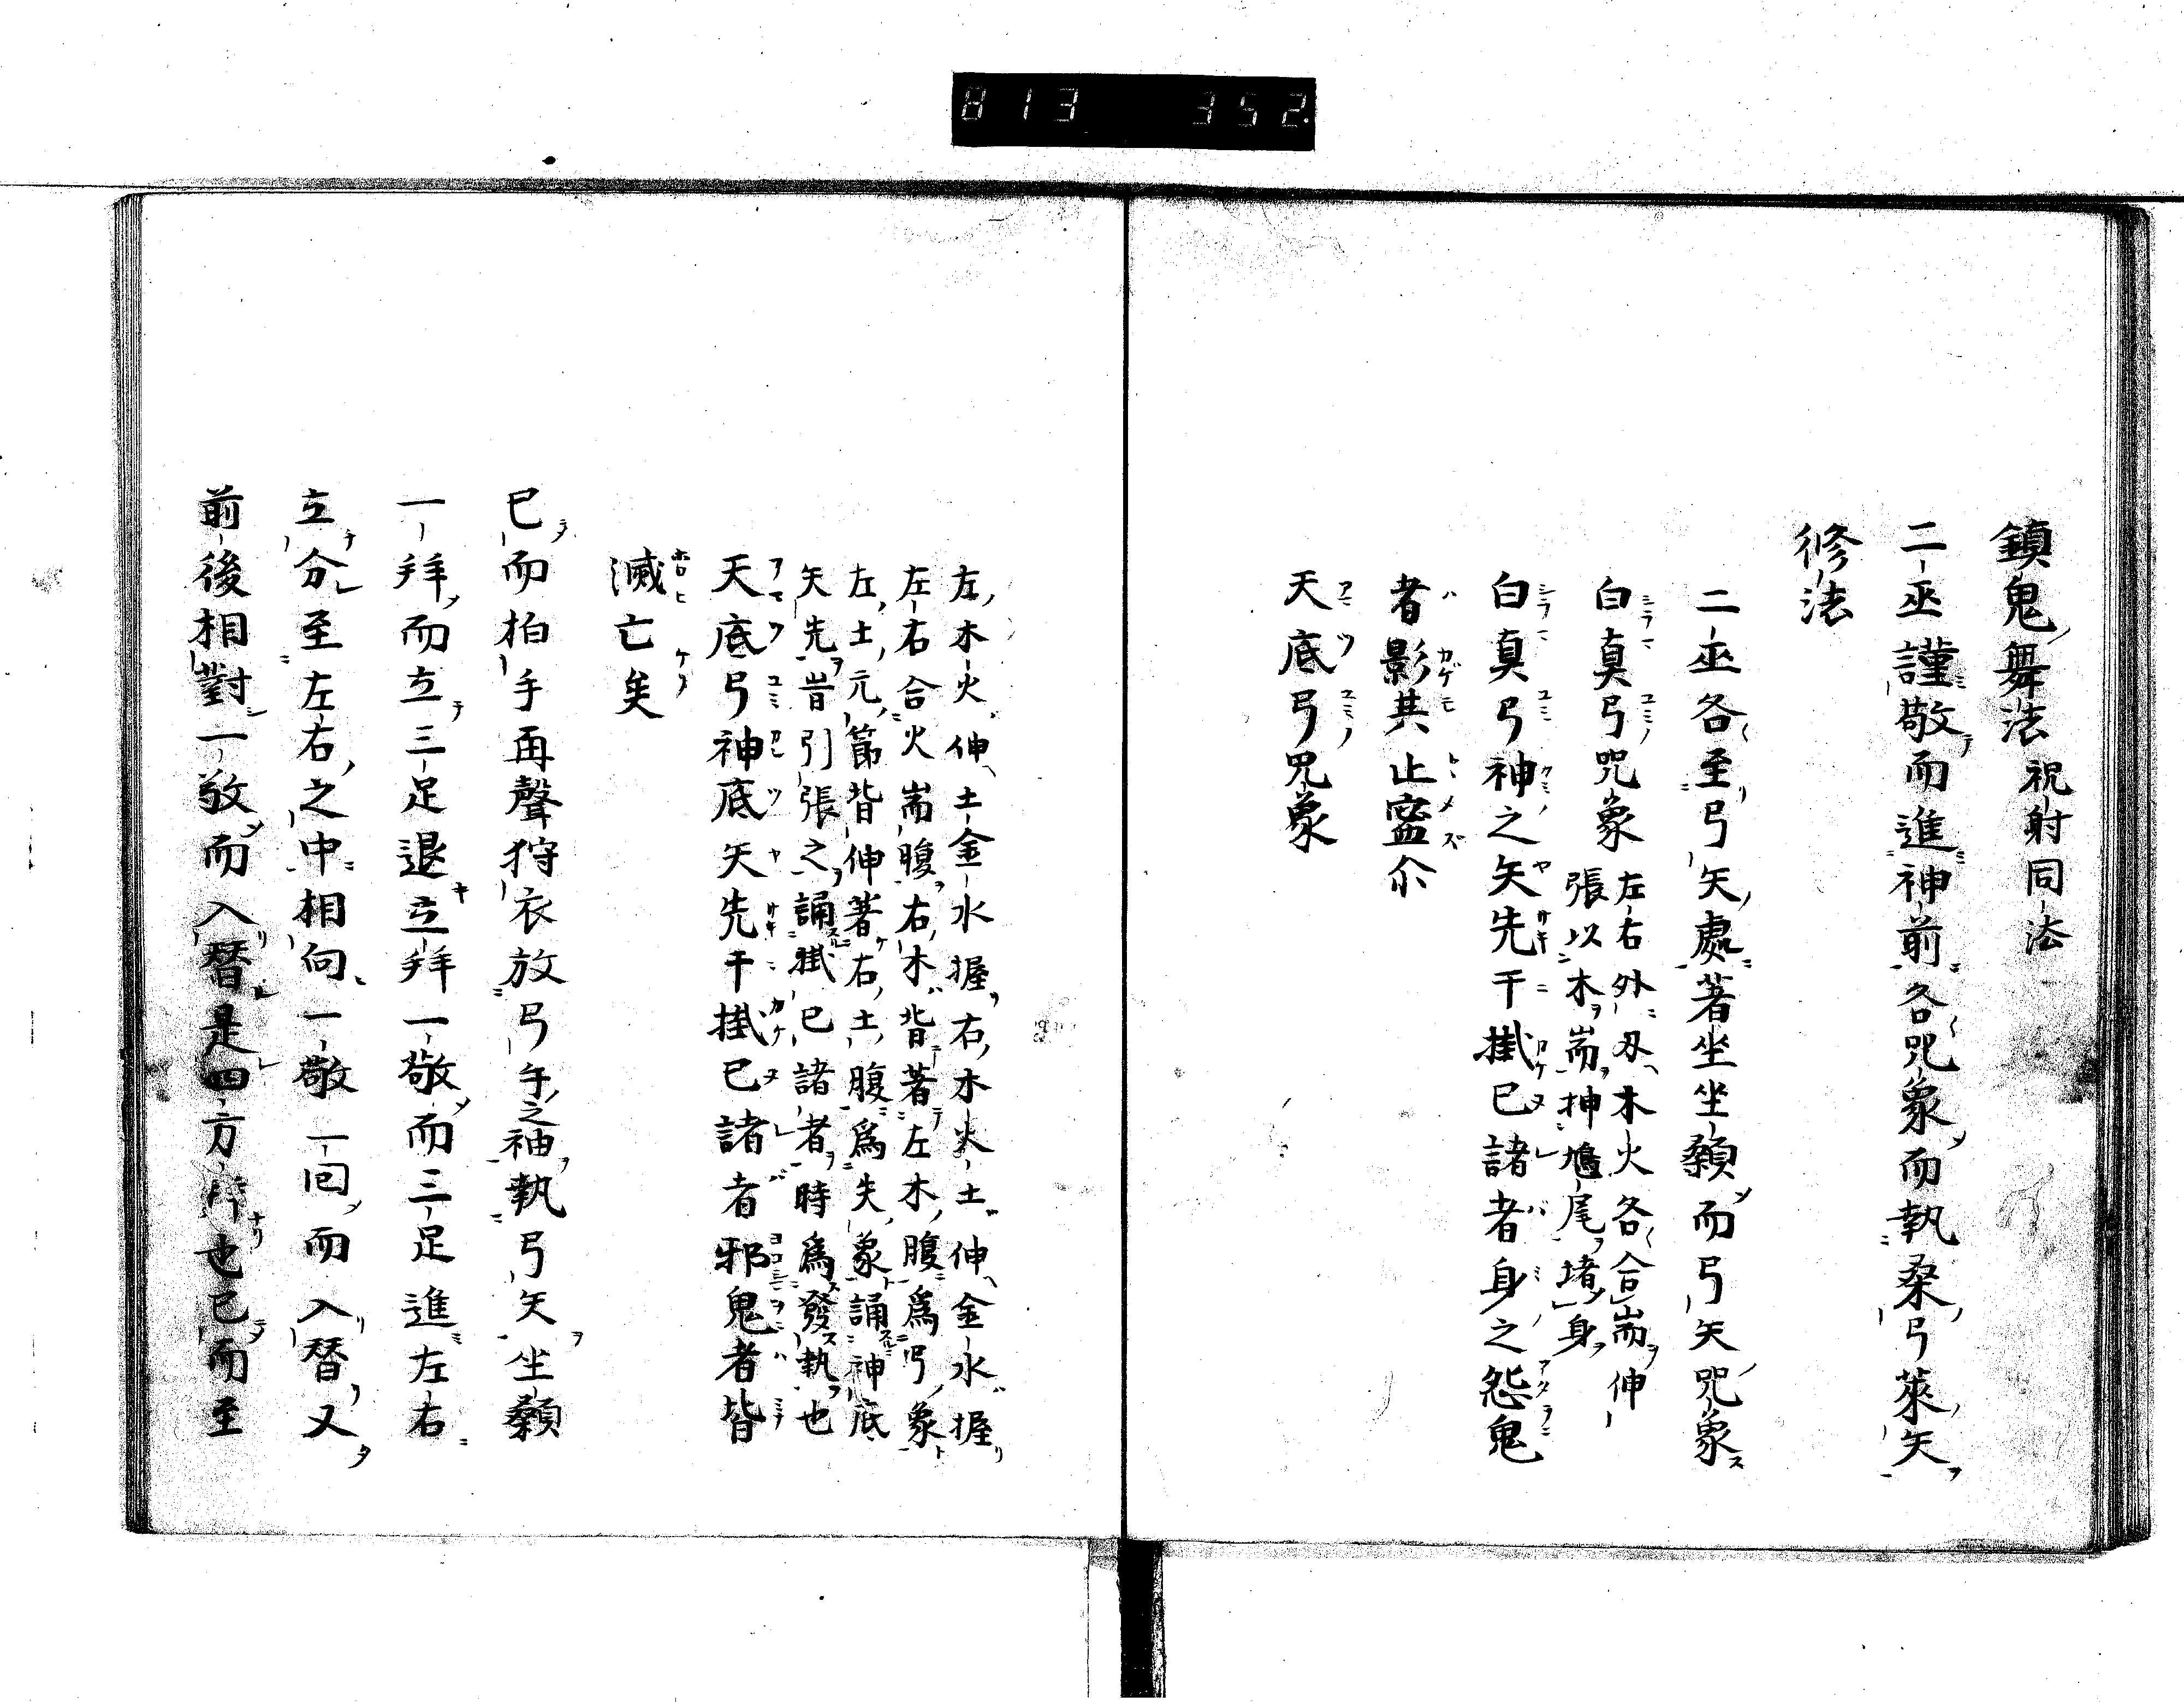 813 352.
鎮鬼舞法 祝射同法
二巫謹敬而進神前各咒象而執桑弓萊矢
修法
二巫各至弓矢處著坐坐額而弓矢咒象
白真弓咒象 左右外刄木火各合耑伸
張以木耑抻鳩尾堵身
白真弓神之矢先干掛已諸者身之怨鬼
者影共止窓尒
天底弓咒象
左木火伸土金水握右木火土伸金水握
左右合火耑腹右木背著左木腹爲弓象
左土元節背伸著右土腹爲失象誦神底
矢先耑引張之誦掛已諸者時爲發執也
天底弓神底矢先干掛已諸者邪鬼者皆
滅亡矣
已而拍手再聲狩衣放弓手之袖執弓矢坐額
一拜而立三足退立拜一敬而三足進左右
立分至左右之中相向一敬一回而入替又
前後相對一敬而入替是四方拜也已而至